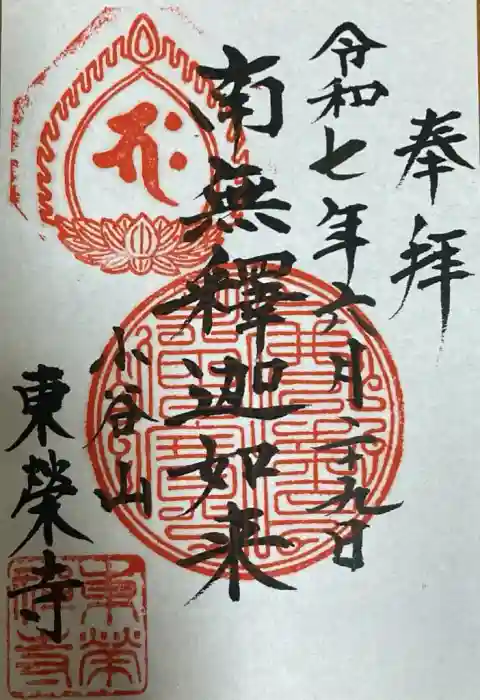 奉拝
令和七年六月二十九日
南無釋迦如来
小谷山
東榮寺